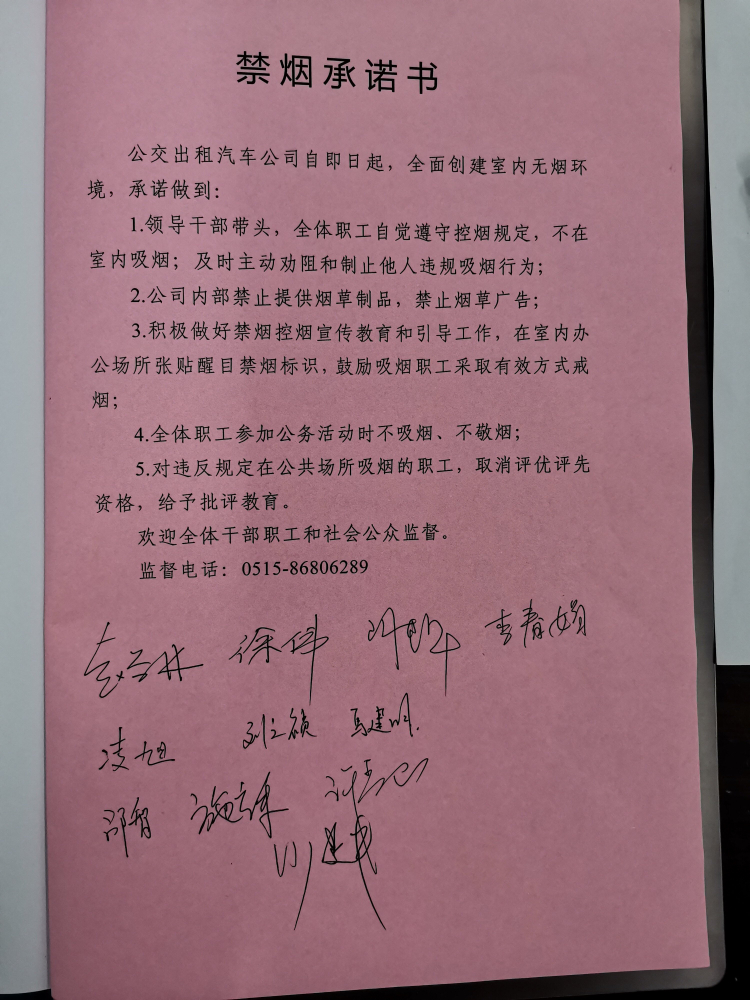 禁烟承诺书
公交出租汽车公司自即日起，全面创建室内无烟环
境，承诺做到：
1.领导干部带头，全体职工自觉遵守控烟规定，不在
室内吸烟；及时主动劝阻和制止他人违规吸烟行为；
2.公司内部禁止提供烟草制品，禁止烟草广告；
3.积极做好禁烟控烟宣传教育和引导工作，在室内办
公场所张贴醒目禁烟标识，鼓励吸烟职工采取有效方式戒
烟；
4.全体职工参加公务活动时不吸烟、不敬烟；
5.对违反规定在公共场所吸烟的职工，取消评优评先
资格，给予批评教育。
欢迎全体干部职工和社会公众监督。
监督电话：0515-86806289
徐伟 李春娟
凌旭 马建明
邵智